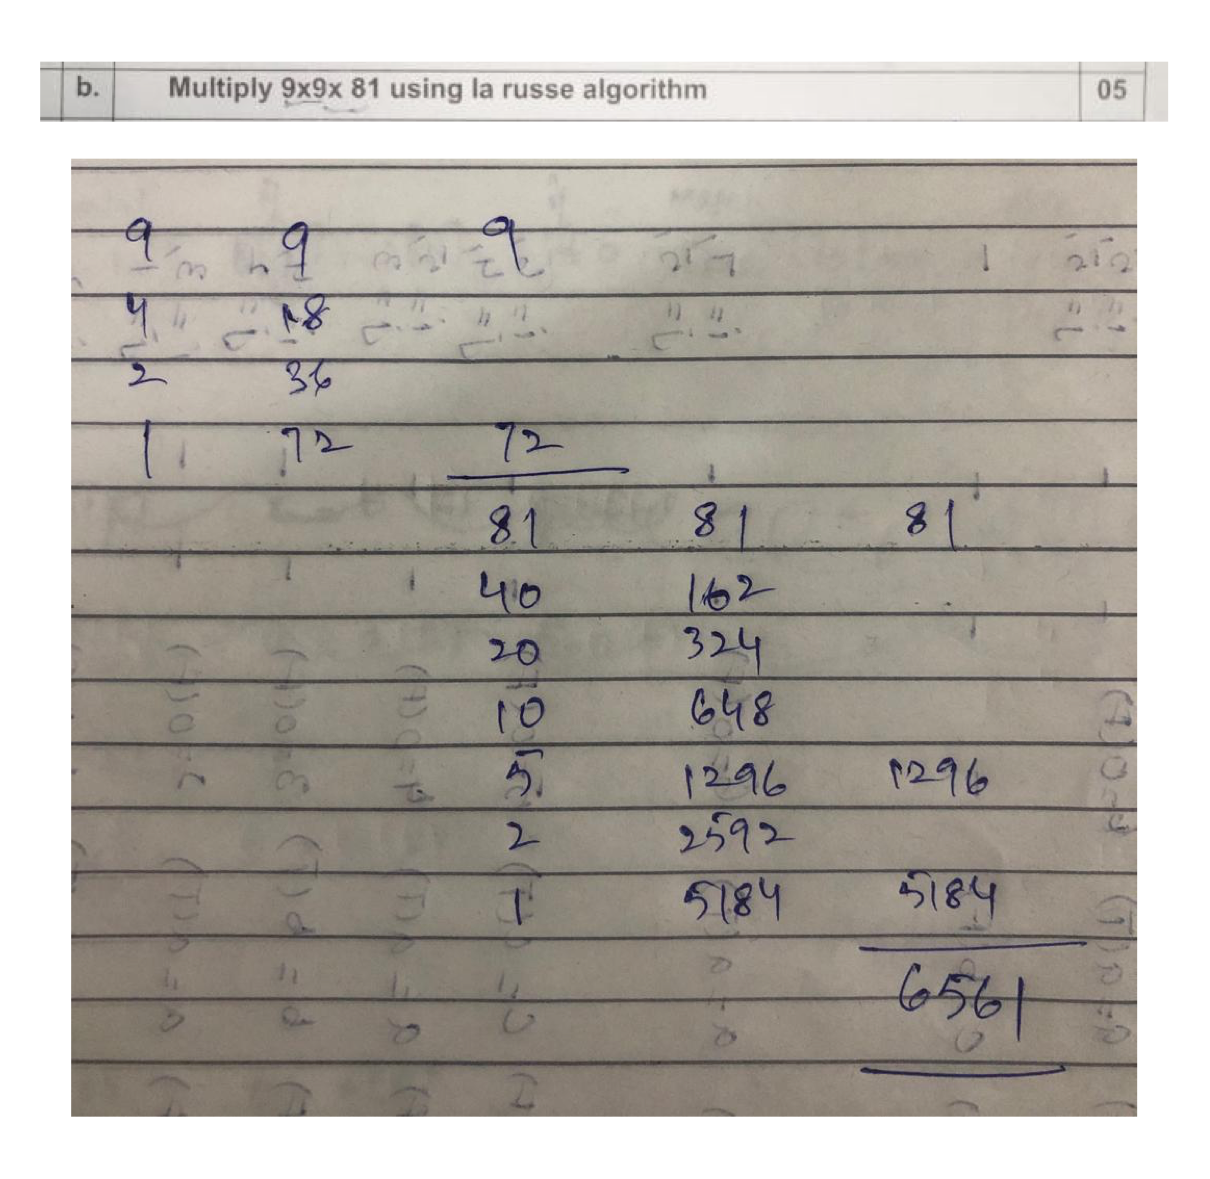 b. Multiply 9x9x 81 using la russe algorithm 05
9 9 9
4 18
2 36
1 72 72
81 81 81
40 162
20 324
10 648
5 1296 1296
2 2592
1 5184 5184
6561